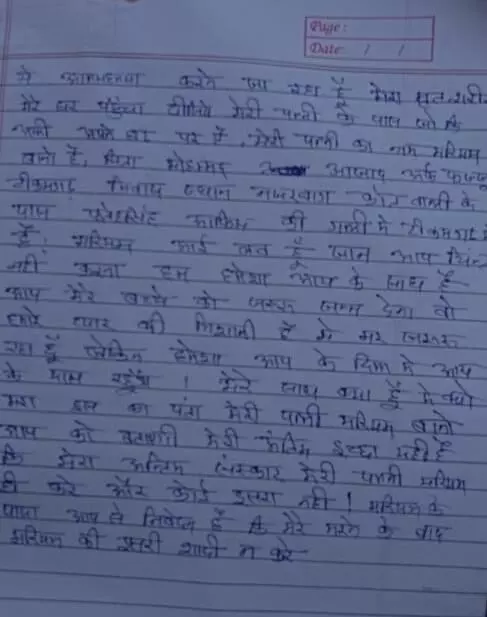 Page:
Date: / /
मै आत्महत्या करने जा रहा हूँ मेरा मृत शरीर
मेरे घर पहुंचा दीजिये मेरी पत्नी के पास जो कि
अभी अपने घर पर है, मेरी पत्नी का नाम मरियम
बानो है, पिता मोहम्मद आजाद उर्फ
टीकमगढ़ निवास स्थान नजरबाग कोतवाली के
पास की गली मे टीकमगढ़ मे
है। मरियम आई लव यू जान आप चिन्ता
नहीं करना हम हमेशा आप के साथ है
आप मेरे बच्चे को जरूर जन्म देना वो
हमारे प्यार की निशानी है मे मर जरूर
रहा हूँ लेकिन हमेशा आप के दिल मे आप
के पास रहूँगा। मेरे साथ क्या हूँ मे क्यो
मरा इस का पता मेरी पत्नी मरियम बानो
आप को बताएगी मेरी अंतिम इच्छा यही है
कि मेरा अन्तिम संस्कार मेरी पत्नी मरियम
ही करे और कोई दूसरा नही! मरियम के
पापा आप से निवेदन है कि मेरे मरने के बाद
मरियम की दूसरी शादी न करे